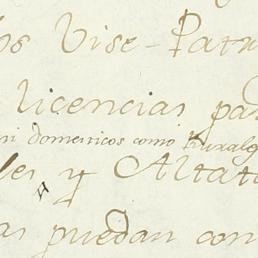 os Vise-Patr
licencias pa
ni domesticos como Ruralq
les y Altat
as puedan con